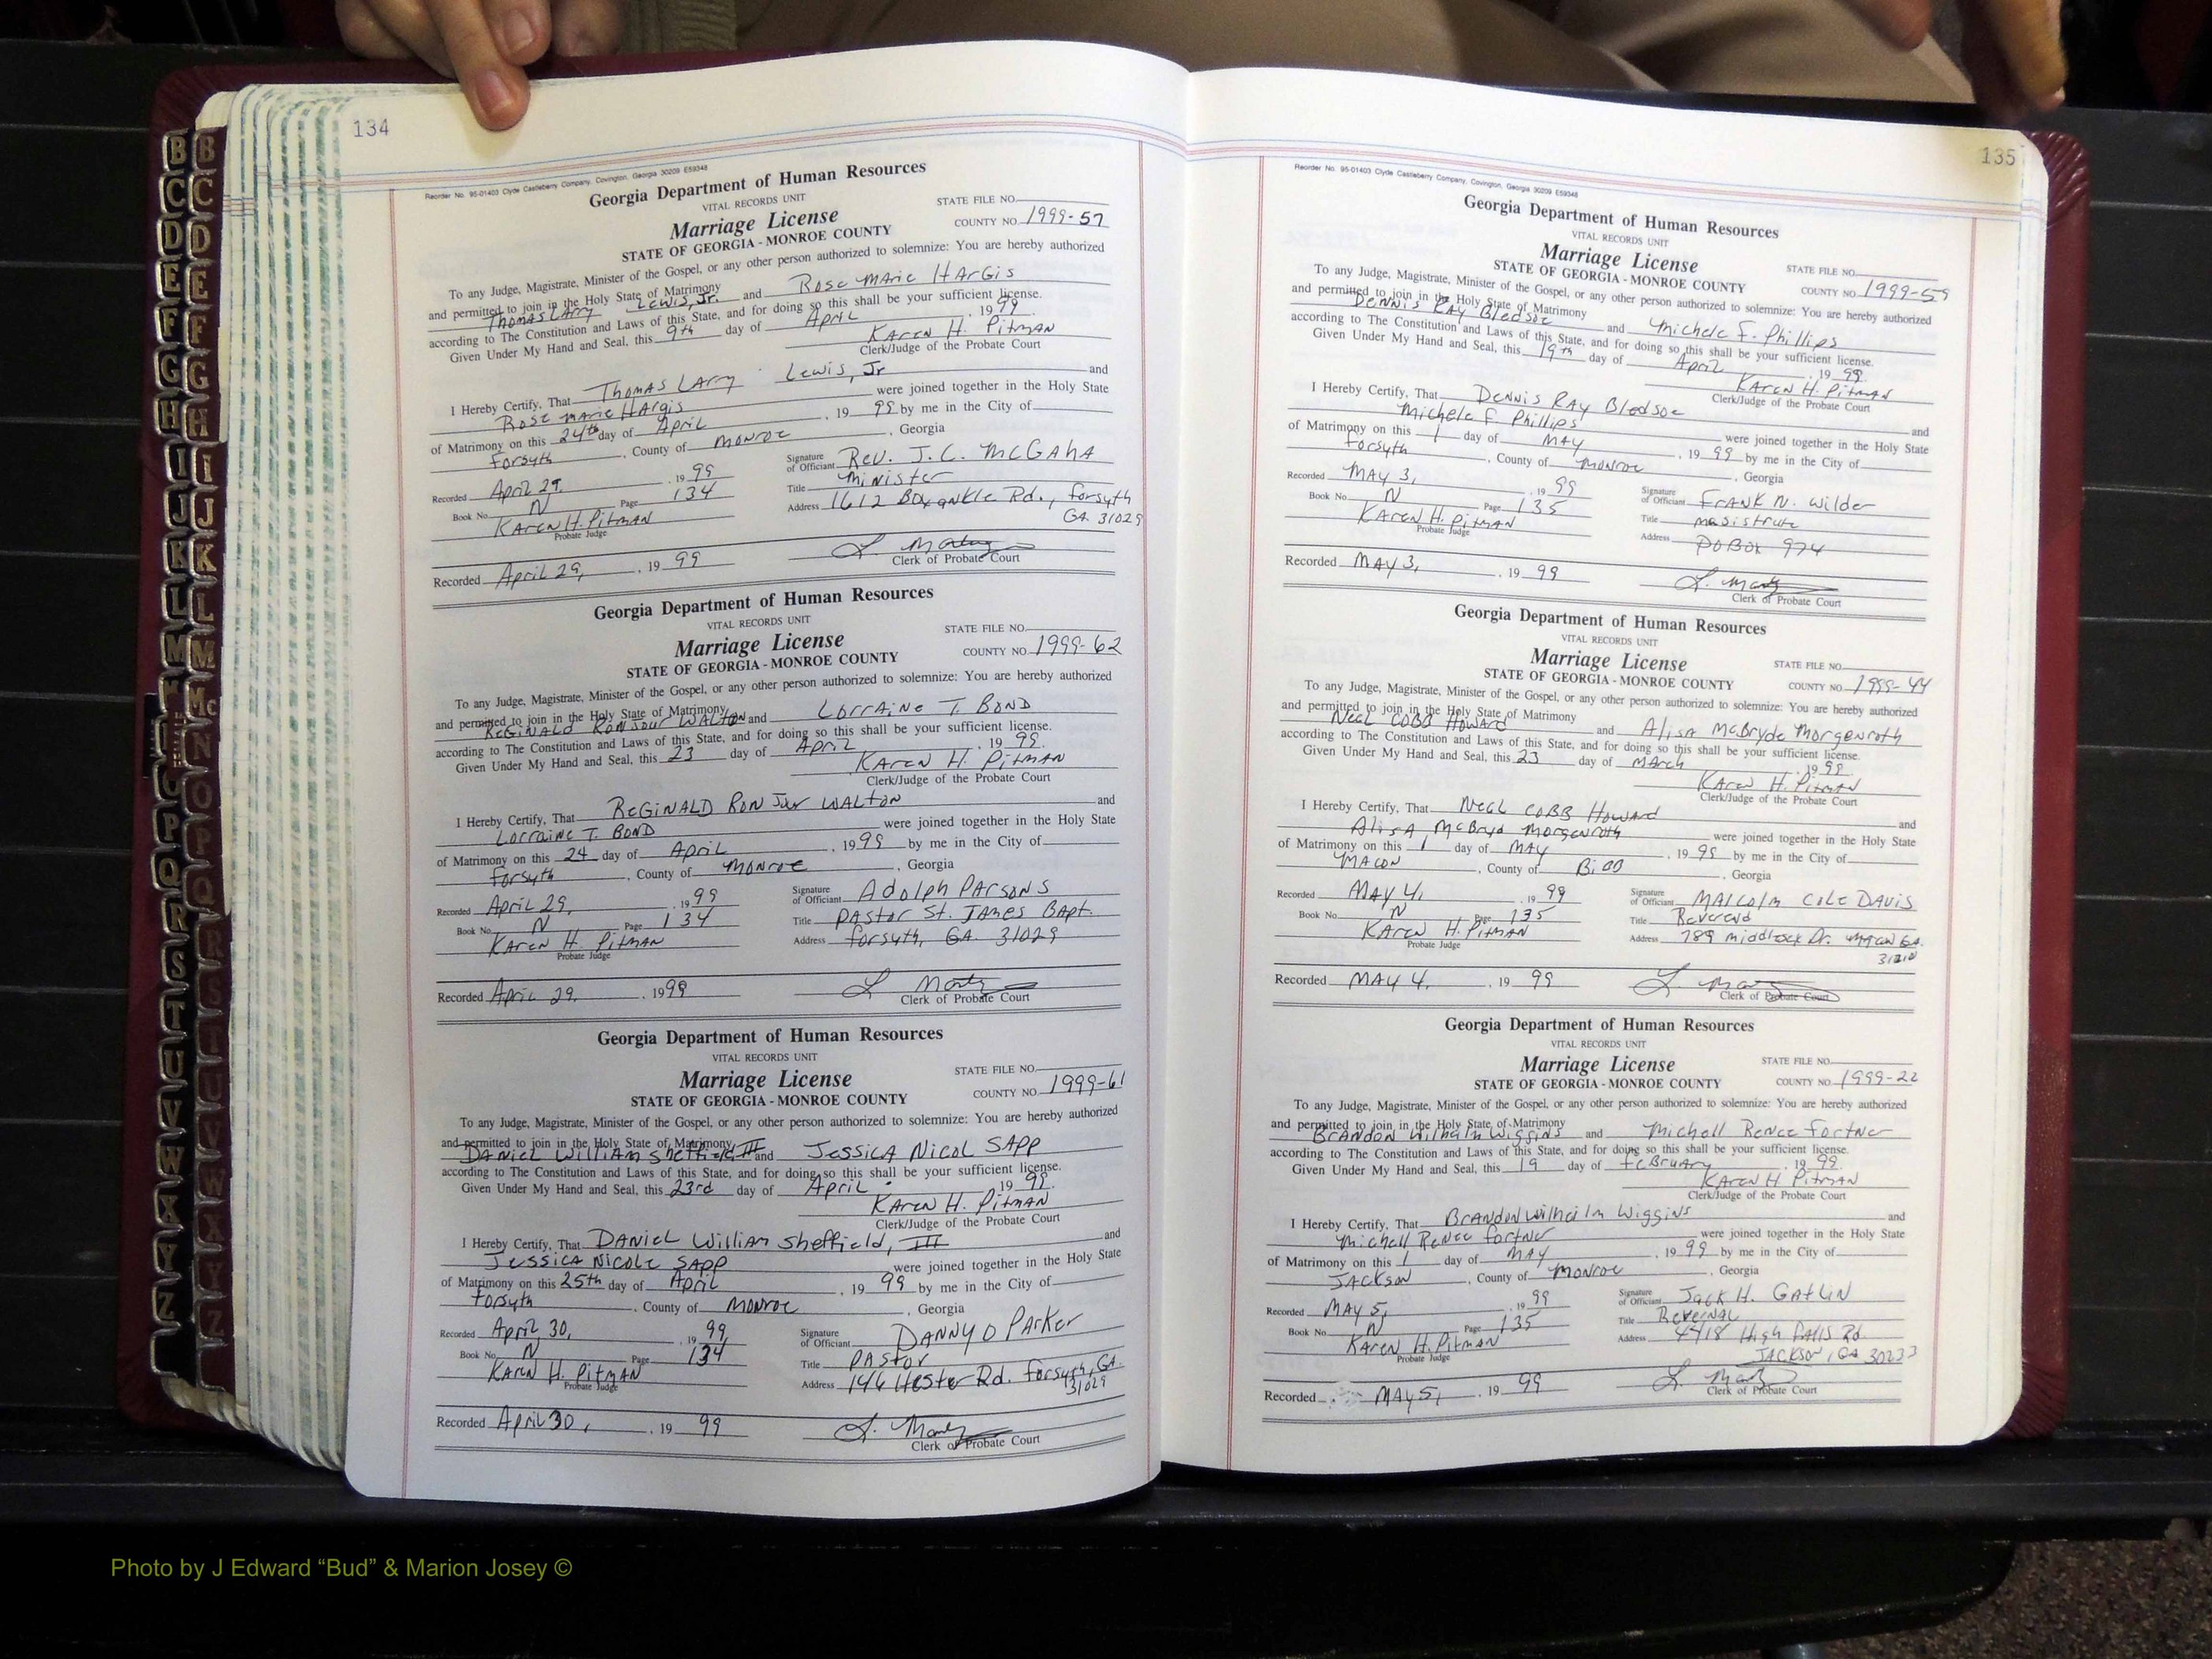 134
Reorder No. 95-01403 Clyde Castleberry Company, Covington, Georgia 30209 E59348
Georgia Department of Human Resources
VITAL RECORDS UNIT
Marriage License
STATE OF GEORGIA - MONROE COUNTY
STATE FILE NO.
COUNTY NO. 1999-57
To any Judge, Magistrate, Minister of the Gospel, or any other person authorized to solemnize: You are hereby authorized
and permitted to join in the Holy State of Matrimony
Thomas Larry Lewis, Jr. and Rose Marie Hargis
according to The Constitution and Laws of this State, and for doing so this shall be your sufficient license.
Given Under My Hand and Seal, this 9th day of April, 1999
Karen H. Pitman
Clerk/Judge of the Probate Court
I Hereby Certify, That Thomas Larry Lewis, Jr and
Rose Marie Hargis were joined together in the Holy State
of Matrimony on this 24th day of April, 1999 by me in the City of
Forsyth, County of Monroe, Georgia
Recorded April 29, 1999
Book No. N Page 134
Karen H. Pitman
Probate Judge
Signature of Officiant Rev. J.C. McGaha
Title Minister
Address 1612 Boxankle Rd., Forsyth
GA. 31029
Recorded April 29, 1999
Clerk of Probate Court
Georgia Department of Human Resources
VITAL RECORDS UNIT
Marriage License
STATE OF GEORGIA - MONROE COUNTY
STATE FILE NO.
COUNTY NO. 1999-62
To any Judge, Magistrate, Minister of the Gospel, or any other person authorized to solemnize: You are hereby authorized
and permitted to join in the Holy State of Matrimony
Reginald Walton and Lorraine T. Bond
according to The Constitution and Laws of this State, and for doing so this shall be your sufficient license.
Given Under My Hand and Seal, this 23 day of April, 1999
Karen H. Pitman
Clerk/Judge of the Probate Court
I Hereby Certify, That Reginald Ron Walton and
Lorraine T. Bond were joined together in the Holy State
of Matrimony on this 24 day of April, 1999 by me in the City of
Forsyth, County of Monroe, Georgia
Recorded April 29, 1999
Book No. N Page 134
Karen H. Pitman
Probate Judge
Signature of Officiant Adolph Parsons
Title Pastor St. James Bapt.
Address Forsyth, GA. 31029
Recorded April 29, 1999
Clerk of Probate Court
Georgia Department of Human Resources
VITAL RECORDS UNIT
Marriage License
STATE OF GEORGIA - MONROE COUNTY
STATE FILE NO.
COUNTY NO. 1999-61
To any Judge, Magistrate, Minister of the Gospel, or any other person authorized to solemnize: You are hereby authorized
and permitted to join in the Holy State of Matrimony
Daniel William Sheffield III and Jessica Nicol Sapp
according to The Constitution and Laws of this State, and for doing so this shall be your sufficient license.
Given Under My Hand and Seal, this 23rd day of April, 1999
Karen H. Pitman
Clerk/Judge of the Probate Court
I Hereby Certify, That Daniel William Sheffield, III and
Jessica Nicole Sapp were joined together in the Holy State
of Matrimony on this 25th day of April, 1999 by me in the City of
Forsyth, County of Monroe, Georgia
Recorded April 30, 1999
Book No. N Page 134
Karen H. Pitman
Probate Judge
Signature of Officiant Danny D Parker
Title Pastor
Address 146 Hester Rd. Forsyth, GA.
31029
Recorded April 30, 1999
Clerk of Probate Court
135
Reorder No. 95-01403 Clyde Castleberry Company, Covington, Georgia 30209 E59348
Georgia Department of Human Resources
VITAL RECORDS UNIT
Marriage License
STATE OF GEORGIA - MONROE COUNTY
STATE FILE NO.
COUNTY NO. 1999-59
To any Judge, Magistrate, Minister of the Gospel, or any other person authorized to solemnize: You are hereby authorized
and permitted to join in the Holy State of Matrimony
Dennis Ray Bledsoe and Michele F. Phillips
according to The Constitution and Laws of this State, and for doing so this shall be your sufficient license.
Given Under My Hand and Seal, this 19th day of April, 1999
Karen H. Pitman
Clerk/Judge of the Probate Court
I Hereby Certify, That Dennis Ray Bledsoe and
Michele F Phillips were joined together in the Holy State
of Matrimony on this 1 day of May, 1999 by me in the City of
Forsyth, County of Monroe, Georgia
Recorded May 3, 1999
Book No. N Page 135
Karen H. Pitman
Probate Judge
Signature of Officiant Frank N. Wilder
Title Magistrate
Address PO Box 974
Recorded May 3, 1999
Clerk of Probate Court
Georgia Department of Human Resources
VITAL RECORDS UNIT
Marriage License
STATE OF GEORGIA - MONROE COUNTY
STATE FILE NO.
COUNTY NO. 1999-44
To any Judge, Magistrate, Minister of the Gospel, or any other person authorized to solemnize: You are hereby authorized
and permitted to join in the Holy State of Matrimony
Neal Cobb Howard and Alisa McBryde Morgenroth
according to The Constitution and Laws of this State, and for doing so this shall be your sufficient license.
Given Under My Hand and Seal, this 23 day of March, 1999
Karen H. Pitman
Clerk/Judge of the Probate Court
I Hereby Certify, That Neal Cobb Howard and
Alisa McBryd Morgenroth were joined together in the Holy State
of Matrimony on this 1 day of May, 1999 by me in the City of
Macon, County of Bibb, Georgia
Recorded May 4, 1999
Book No. N Page 135
Karen H. Pitman
Probate Judge
Signature of Officiant Malcolm Cole Davis
Title Reverend
Address 789 Middlesex Dr. Macon GA.
Recorded May 4, 1999
Clerk of Probate Court
Georgia Department of Human Resources
VITAL RECORDS UNIT
Marriage License
STATE OF GEORGIA - MONROE COUNTY
STATE FILE NO.
COUNTY NO. 1999-22
To any Judge, Magistrate, Minister of the Gospel, or any other person authorized to solemnize: You are hereby authorized
and permitted to join in the Holy State of Matrimony
Brandon Wilhelm Wiggins and Michell Renee Fortner
according to The Constitution and Laws of this State, and for doing so this shall be your sufficient license.
Given Under My Hand and Seal, this 19 day of February, 1999
Karen H Pitman
Clerk/Judge of the Probate Court
I Hereby Certify, That Brandon Wilhelm Wiggins and
Michell Renee Fortner were joined together in the Holy State
of Matrimony on this 1 day of May, 1999 by me in the City of
Jackson, County of Monroe, Georgia
Recorded May 5, 1999
Book No. N Page 135
Karen H. Pitman
Probate Judge
Signature of Officiant Jack H. Gatlin
Title
Address 4418 High Falls Rd
Jackson, GA 30233
Recorded May 5, 1999
Clerk of Probate Court
B B
C C
D D
E E
F F
G G
H H
I I
J J
K K
L L
M M
Mc
N
O
P P
Q Q
R R
S S
T T
U U
V V
W W
X X
Y Y
Z Z
Photo by J Edward “Bud” & Marion Josey ©